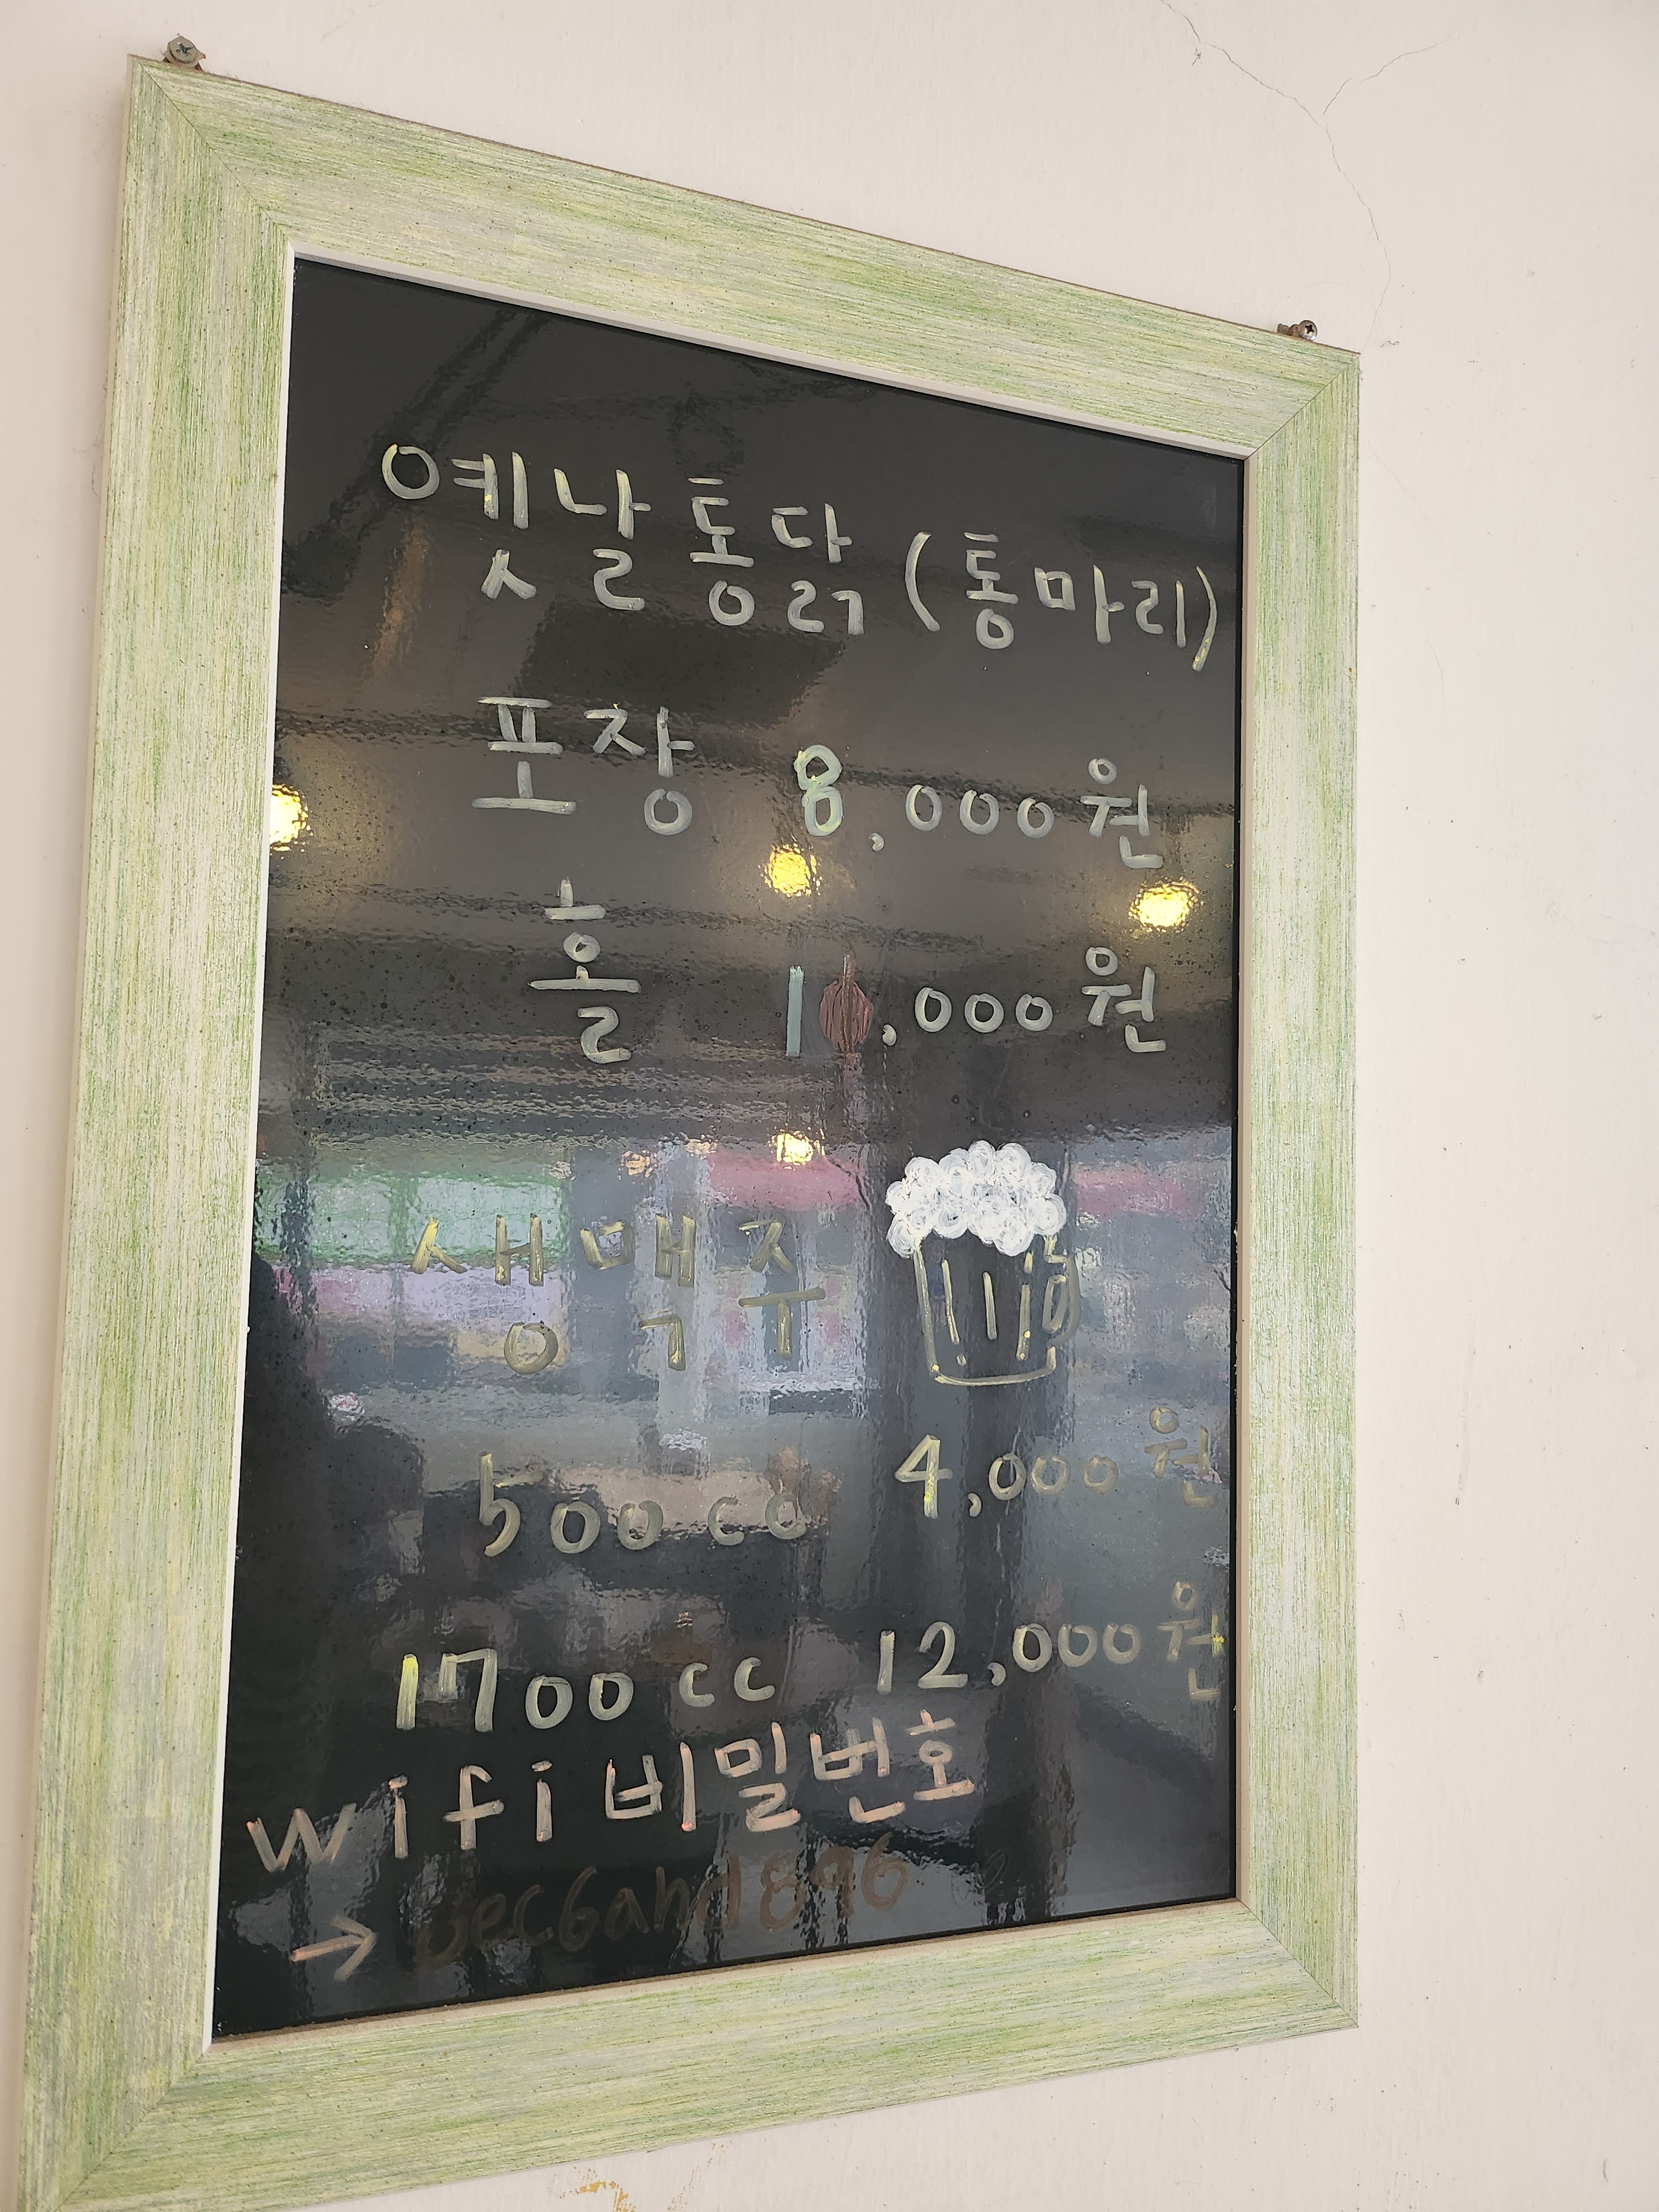 옛날통닭 (통마리)
포장 8,000원
홀
생맥주
500cc 4,000원
1700cc 12,000원
wifi 비밀번호
→